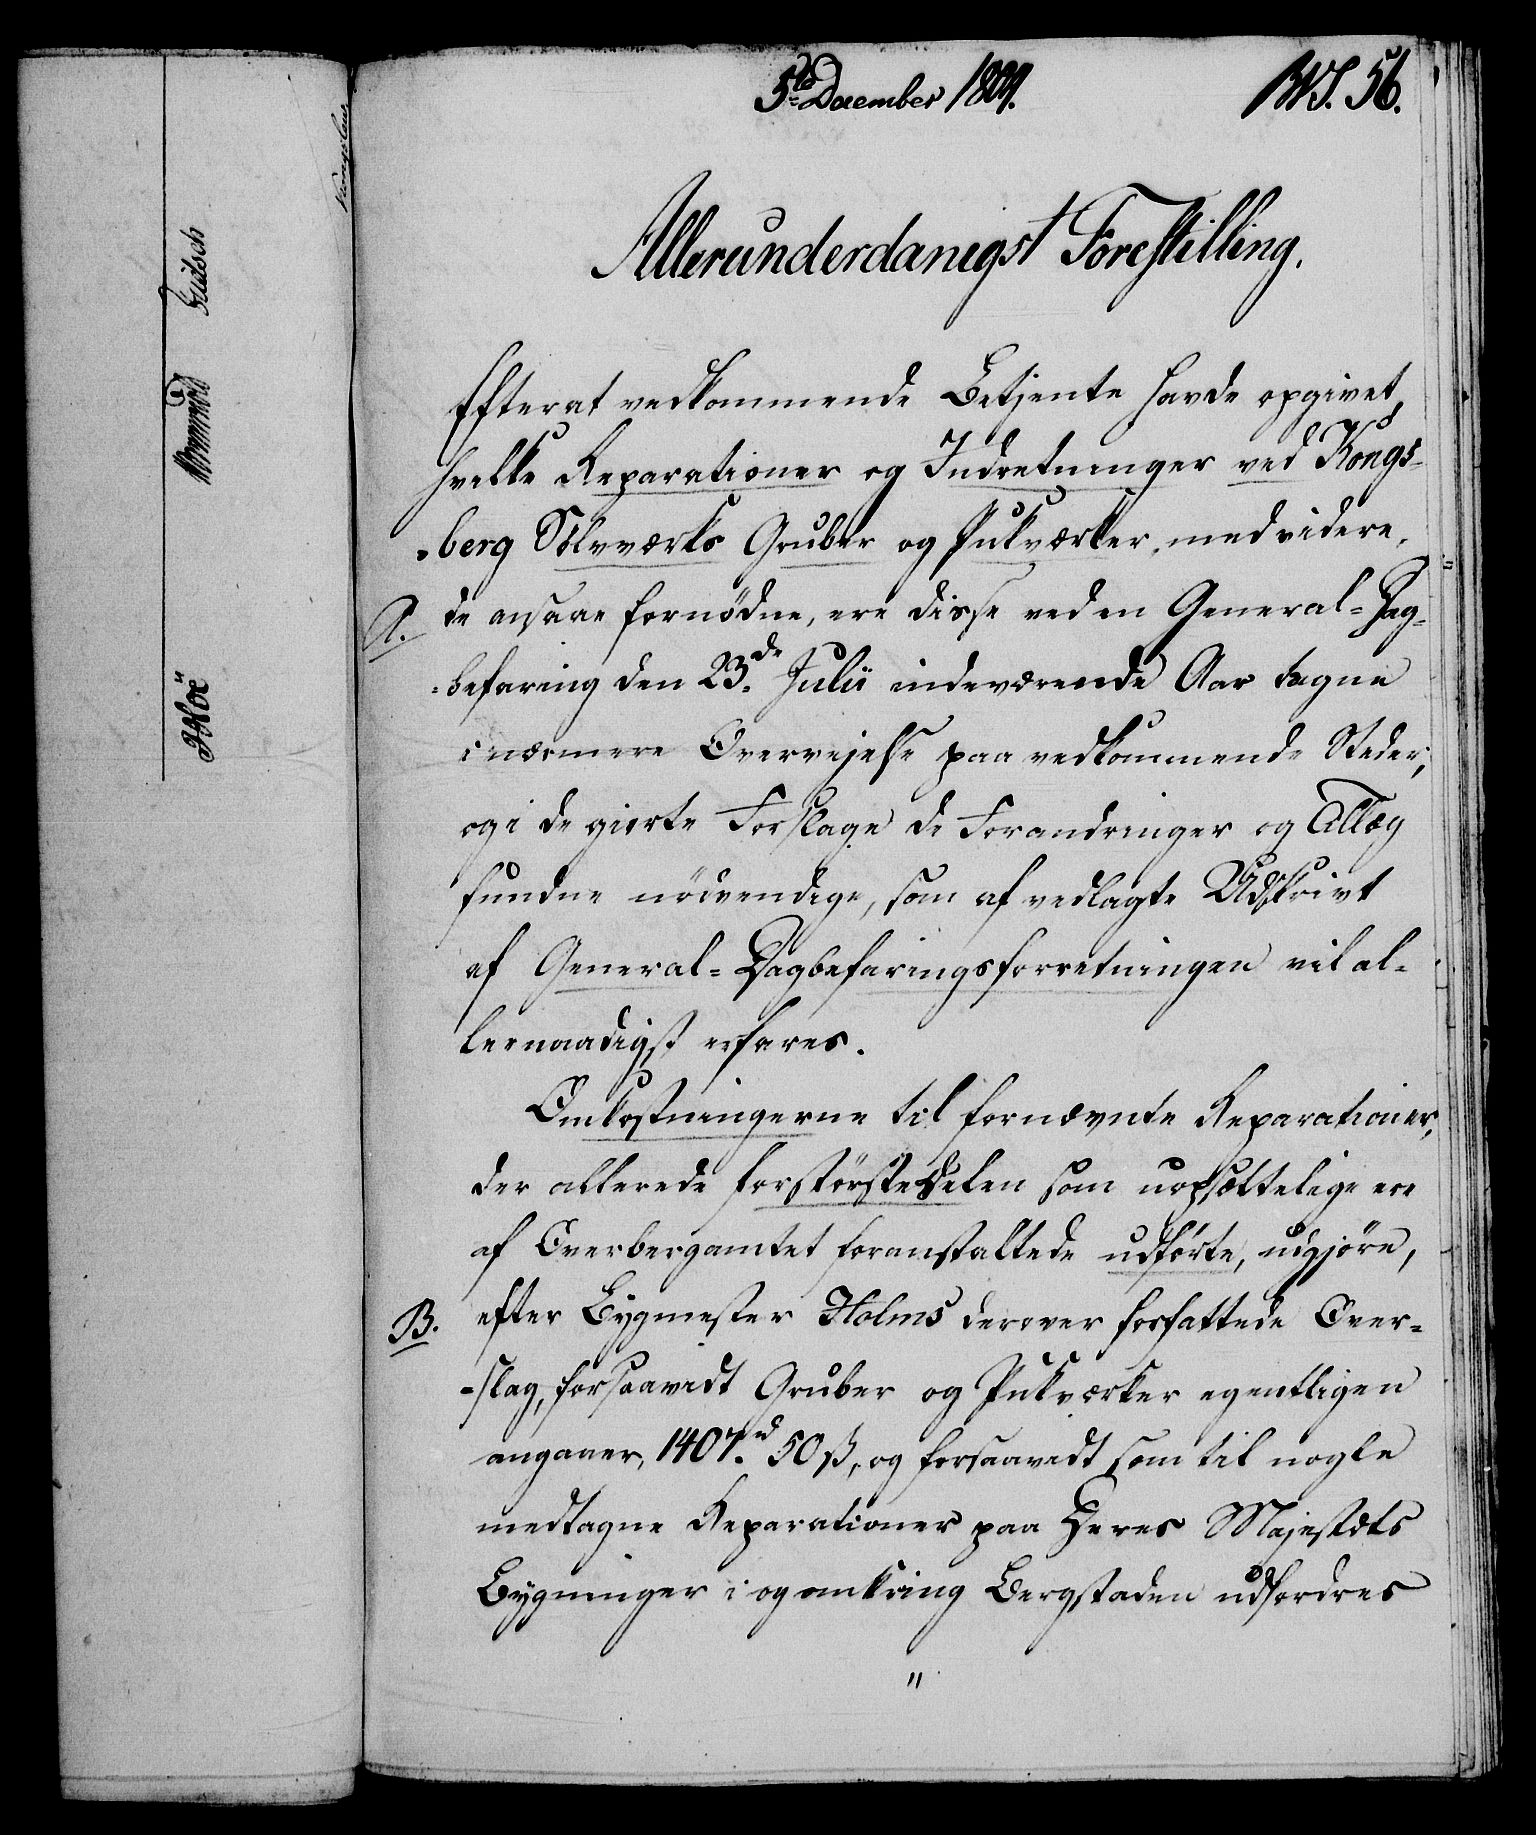 5te December 1809.
56.
Allerunderdanigst Forestilling.
Efterat vedkommende Betjente havde opgivet,
hvilke Reparationer og Indretninger ved Kongs-
-berg Sölvværks Gruber og Pukværker, med videre,
A. de ansaae fornödne, ere disse ved en General-Dag-
-befaring den 23de Julii indeværende Aar tagne
i nærmere Overvejelse paa vedkommende Steder,
og i de giorte Forslage de Forandringer og Tillæg
fundne nödvendige, som af vedlagte Udskrivt
af General-Dagbefaringsforretningen vil al-
lernaadigst erfares.
Omkostningerne til fornævnte Reparationer,
der allerede forstörstedelen som uopsættelige ere
af Overbergamtet foranstaltede udförte, udgjöre,
B. efter Bygmester Holms derover forfattede Over-
-slag, forsaavidt Gruber og Pukværker egentligen
angaaer, 1407rd 50 ß, og forsaavidt som til nogle
medtagne Reparationer paa Deres Majestæts
Bygninger i og omkring Bergstaden udfordres
"